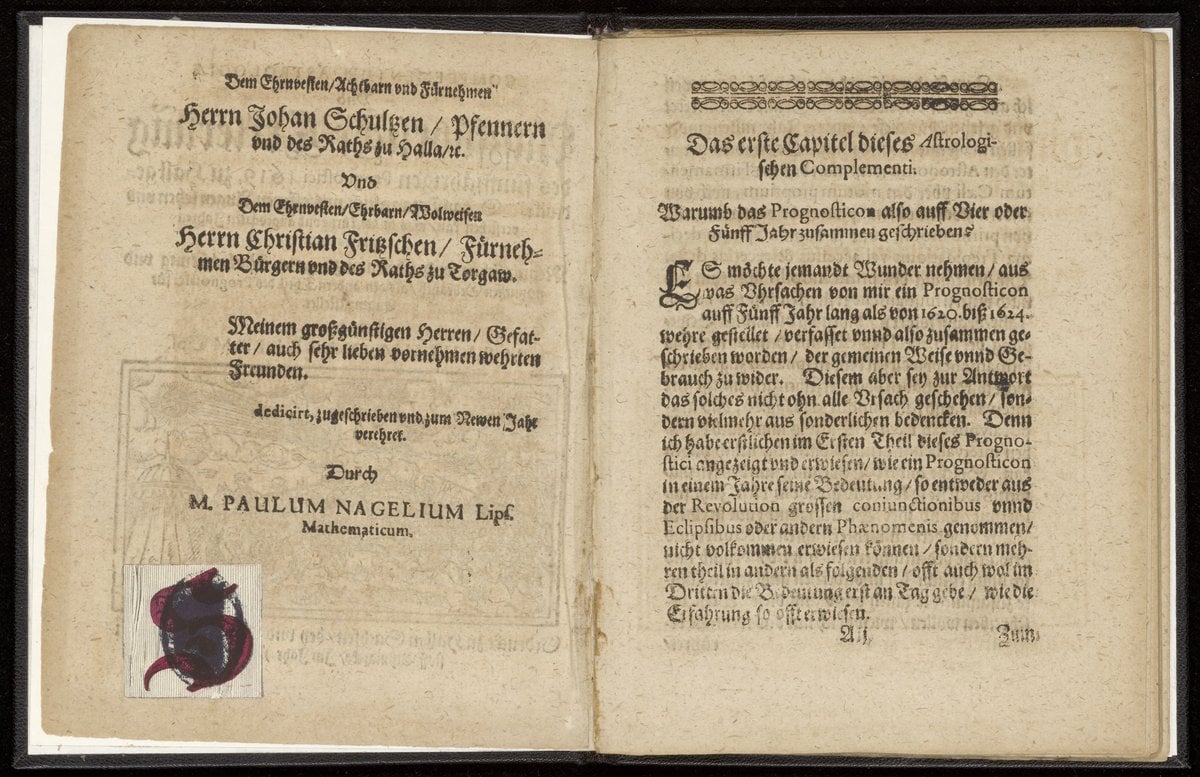 Dem Ehrnvesten/Achtbarn vnd Fürnehmen
Herrn Johan Schultzen / Pfennern
vnd des Raths zu Halla/ꝛc.
Vnd
Dem Ehrnvesten/Ehrbarn/Wolweisen
Herrn Christian Fritzschen / Fürneh-
men Bürgern vnd des Raths zu Torgaw.
Meinem großgünstigen Herren/ Gefat-
ter / auch sehr lieben vornehmen wehrten
Freunden.
dedicirt, zugeschrieben vnd zum Newen Jahr
verehret.
Durch
M. PAULUM NAGELIUM Lips.
Mathematicum.
Das erste Capitel dieses Astrologi-
schen Complementi.
Warumb das Prognosticon also auff Vier oder
Fünff Jahr zusammen geschrieben?
ES möchte jemandt Wunder nehmen / aus
was Vhrsachen von mir ein Prognosticon
auff Fünff Jahr lang als von 1620. biß 1624.
wehre gestellet / verfasset vnnd also zusammen ge-
schrieben worden / der gemeinen Weise vnnd Ge-
brauch zu wider. Diesem aber sey zur Antwort
das solches nicht ohn alle Vrsach geschehen / son-
dern vielmehr aus sonderlichen bedencken. Denn
ich habe erstlichen im Ersten Theil dieses Progno-
stici angezeigt vnd erwiesen / wie ein Prognosticon
in einem Jahre seine Bedeutung / so entweder aus
der Revolution grossen coniunctionibus vnnd
Eclipsibus oder andern Phænomenis genommen /
nicht volkommen erwiesen können / sondern meh-
ren theil in andern als folgenden / offt auch wol im
Dritten die Bedeutung erst an Tag gebe / wie die
Erfahrung so offt erwiesen.
A ij
Zum